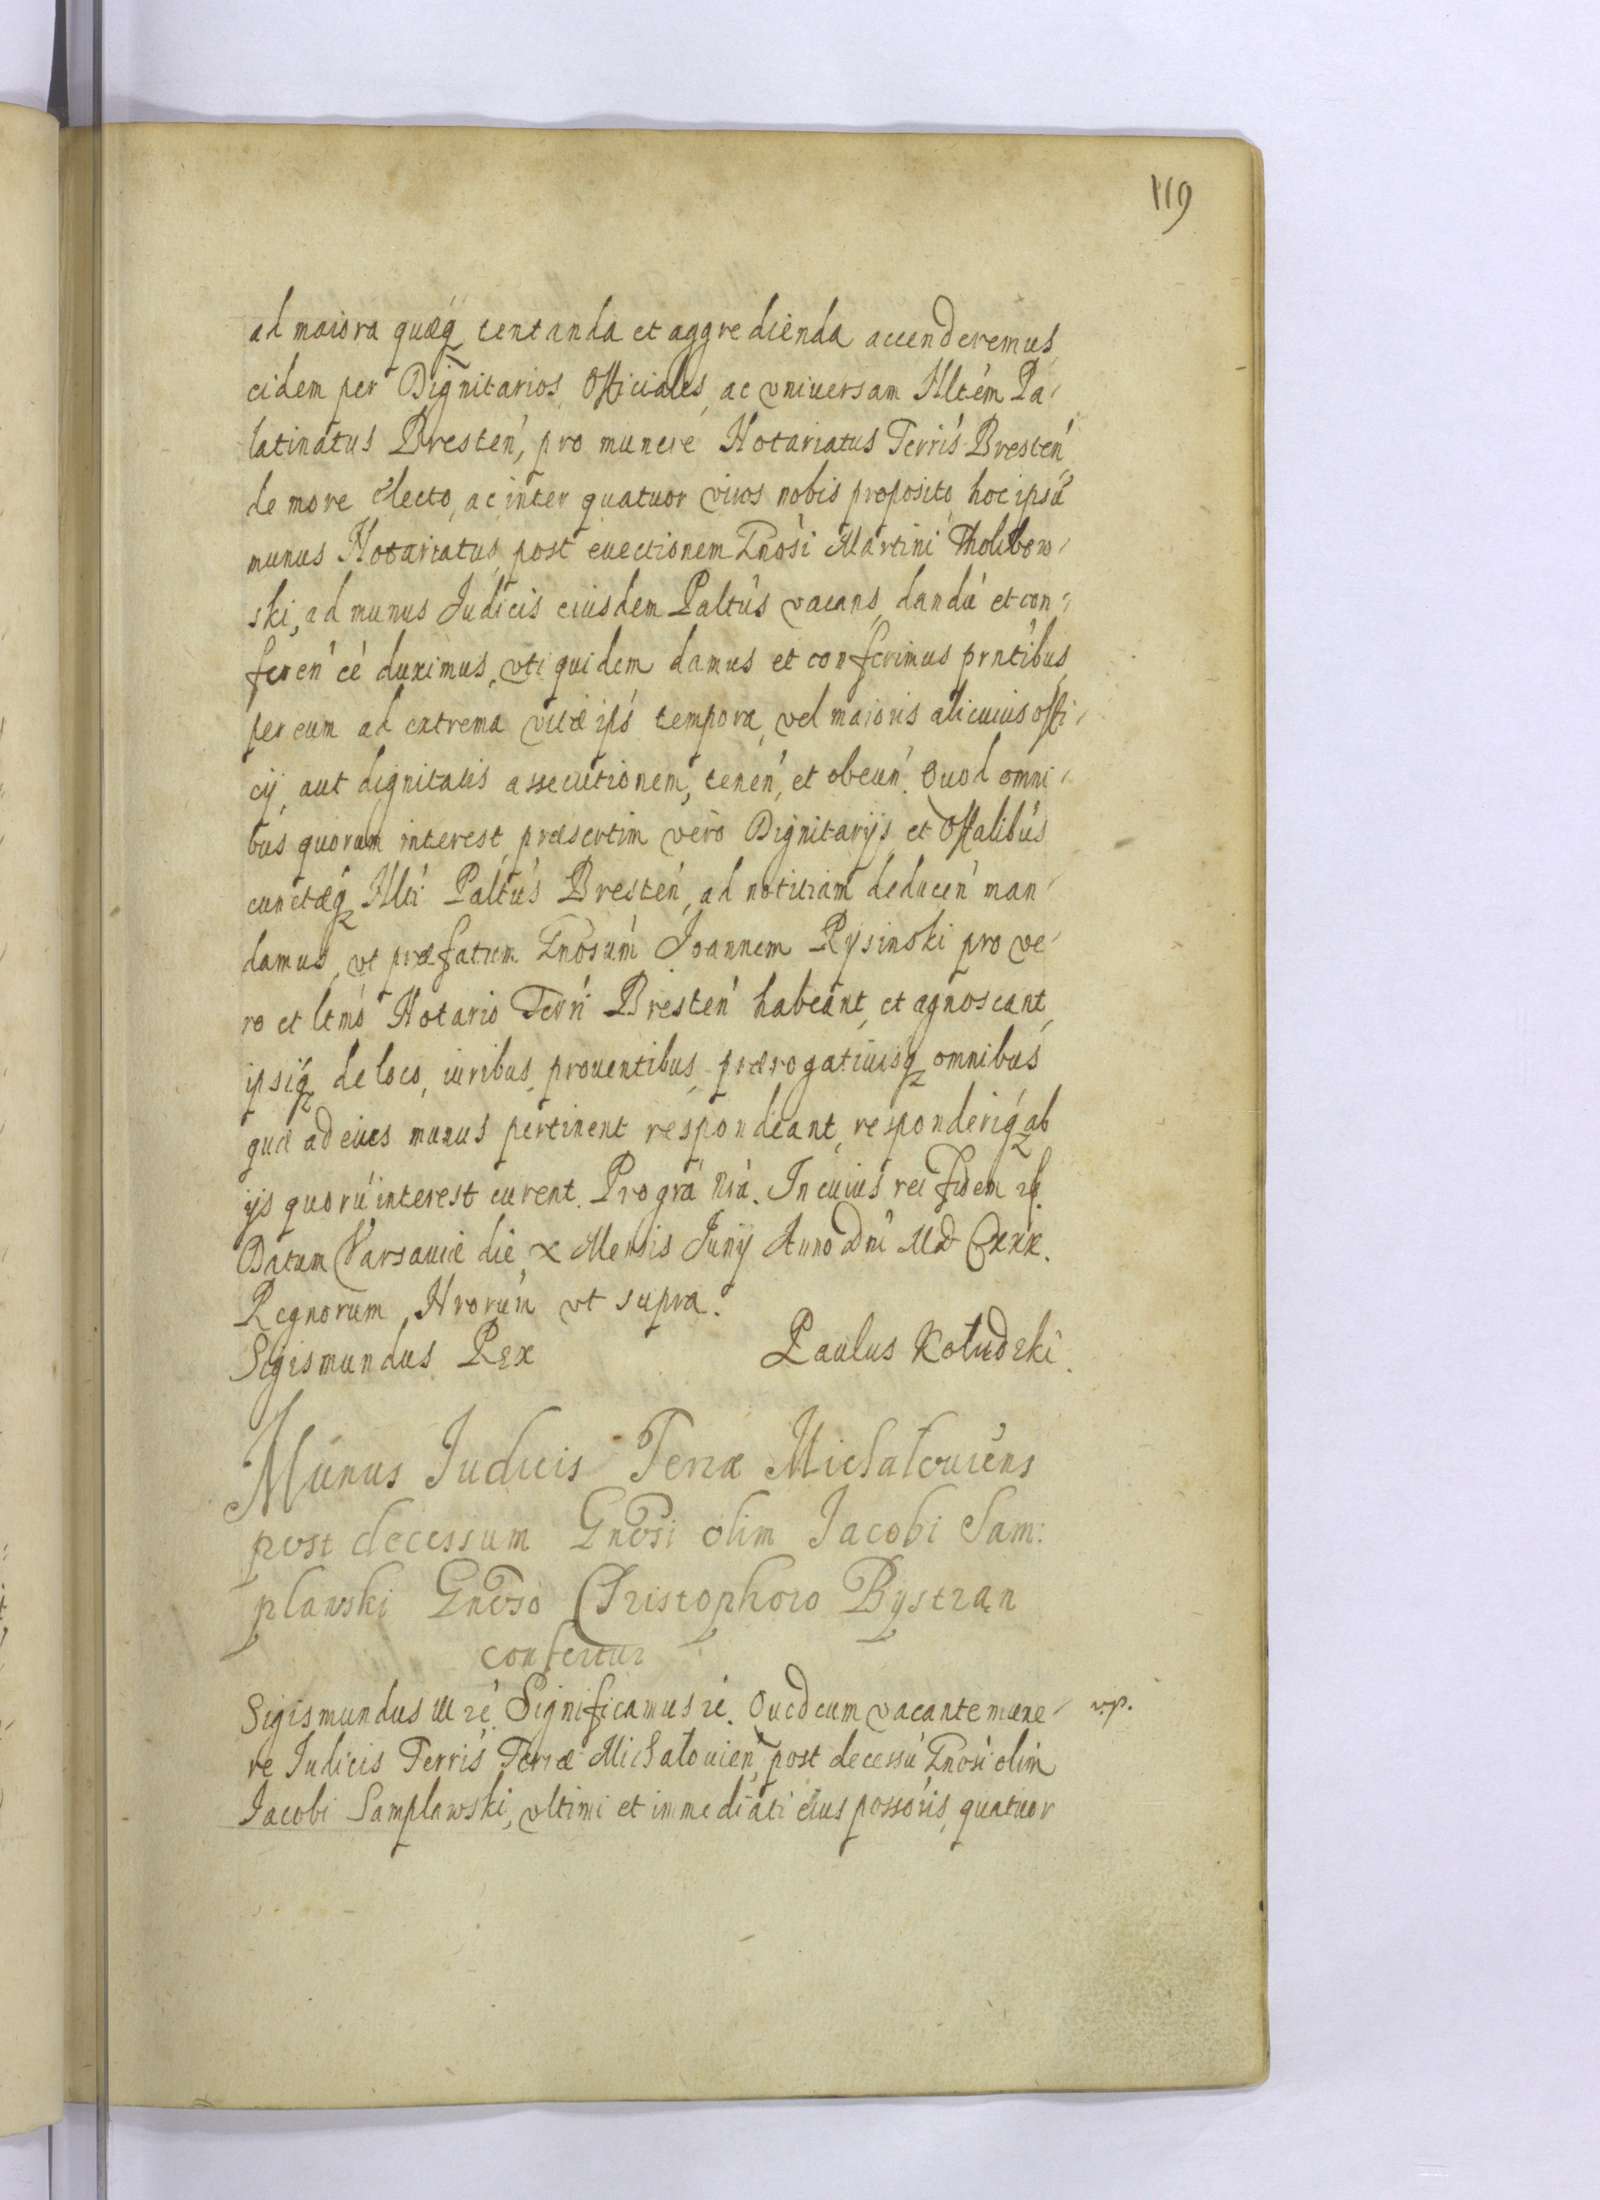 119
ad maiora quæq₃ tentanda et aggredienda accenderemus,
eidem per Dignitarios, Officiales, ac vniuersam Nltem Pa-
latinatus Bresten, pro munere Notariatus Terris Bresten
de more electo, ac inter quatuor viros nobis proposito, hoc ipsū
munus Notariatus, post euectionem Gnosi Martini Tholibow-
ski, ad munus Judicis eiusdem Paltus vacans, dandū et con-
feren eē duximus, vti quidem damus et conferimus prntibus,
per eum ad extrema vitæ ips tempora, vel maioris alicuius offi-
cij, aut dignitatis assecutionem, tenen, et obeun. Quod omni-
bus quorum interest, præsertim vero Dignitarijs et Offalibus
cunctæq₃ Nlti Paltus Bresten, ad notitiam deducen man-
damus, vt præfatum Gnosum Joannem Rysinski pro ve-
ro et ltmo Notario Terri Bresten habeant, et agnoscant,
ipsiq₃ de loco, iuribus, prouentibus, prærogatiuisq₃ omnibus
quæ ad eius munus pertinent respondeant, responderiq₃ ab
ijs quorū interest curent. Pro gra nra. In cuius rei fidem rc.
Datum Varsauiæ die X Mensis Junij Anno Dni MDCXXX.
Regnorum Nrorum vt supra.
Sigismundus Rex Paulus Kołudzki.
Munus Judicis Terræ Michałouiens
post decessum Gnosi olim Jacobi Sam:
plawski Gnoso Christophoro Bystran
confertur
Sigismundus III rc. Significamus rc. Quod cum vacante mune- v.p.
re Judicis Terris Terræ Michałouien, post decessū Gnosi olim
Jacobi Samplawski, vltimi et immediati eius possoris, quatuor